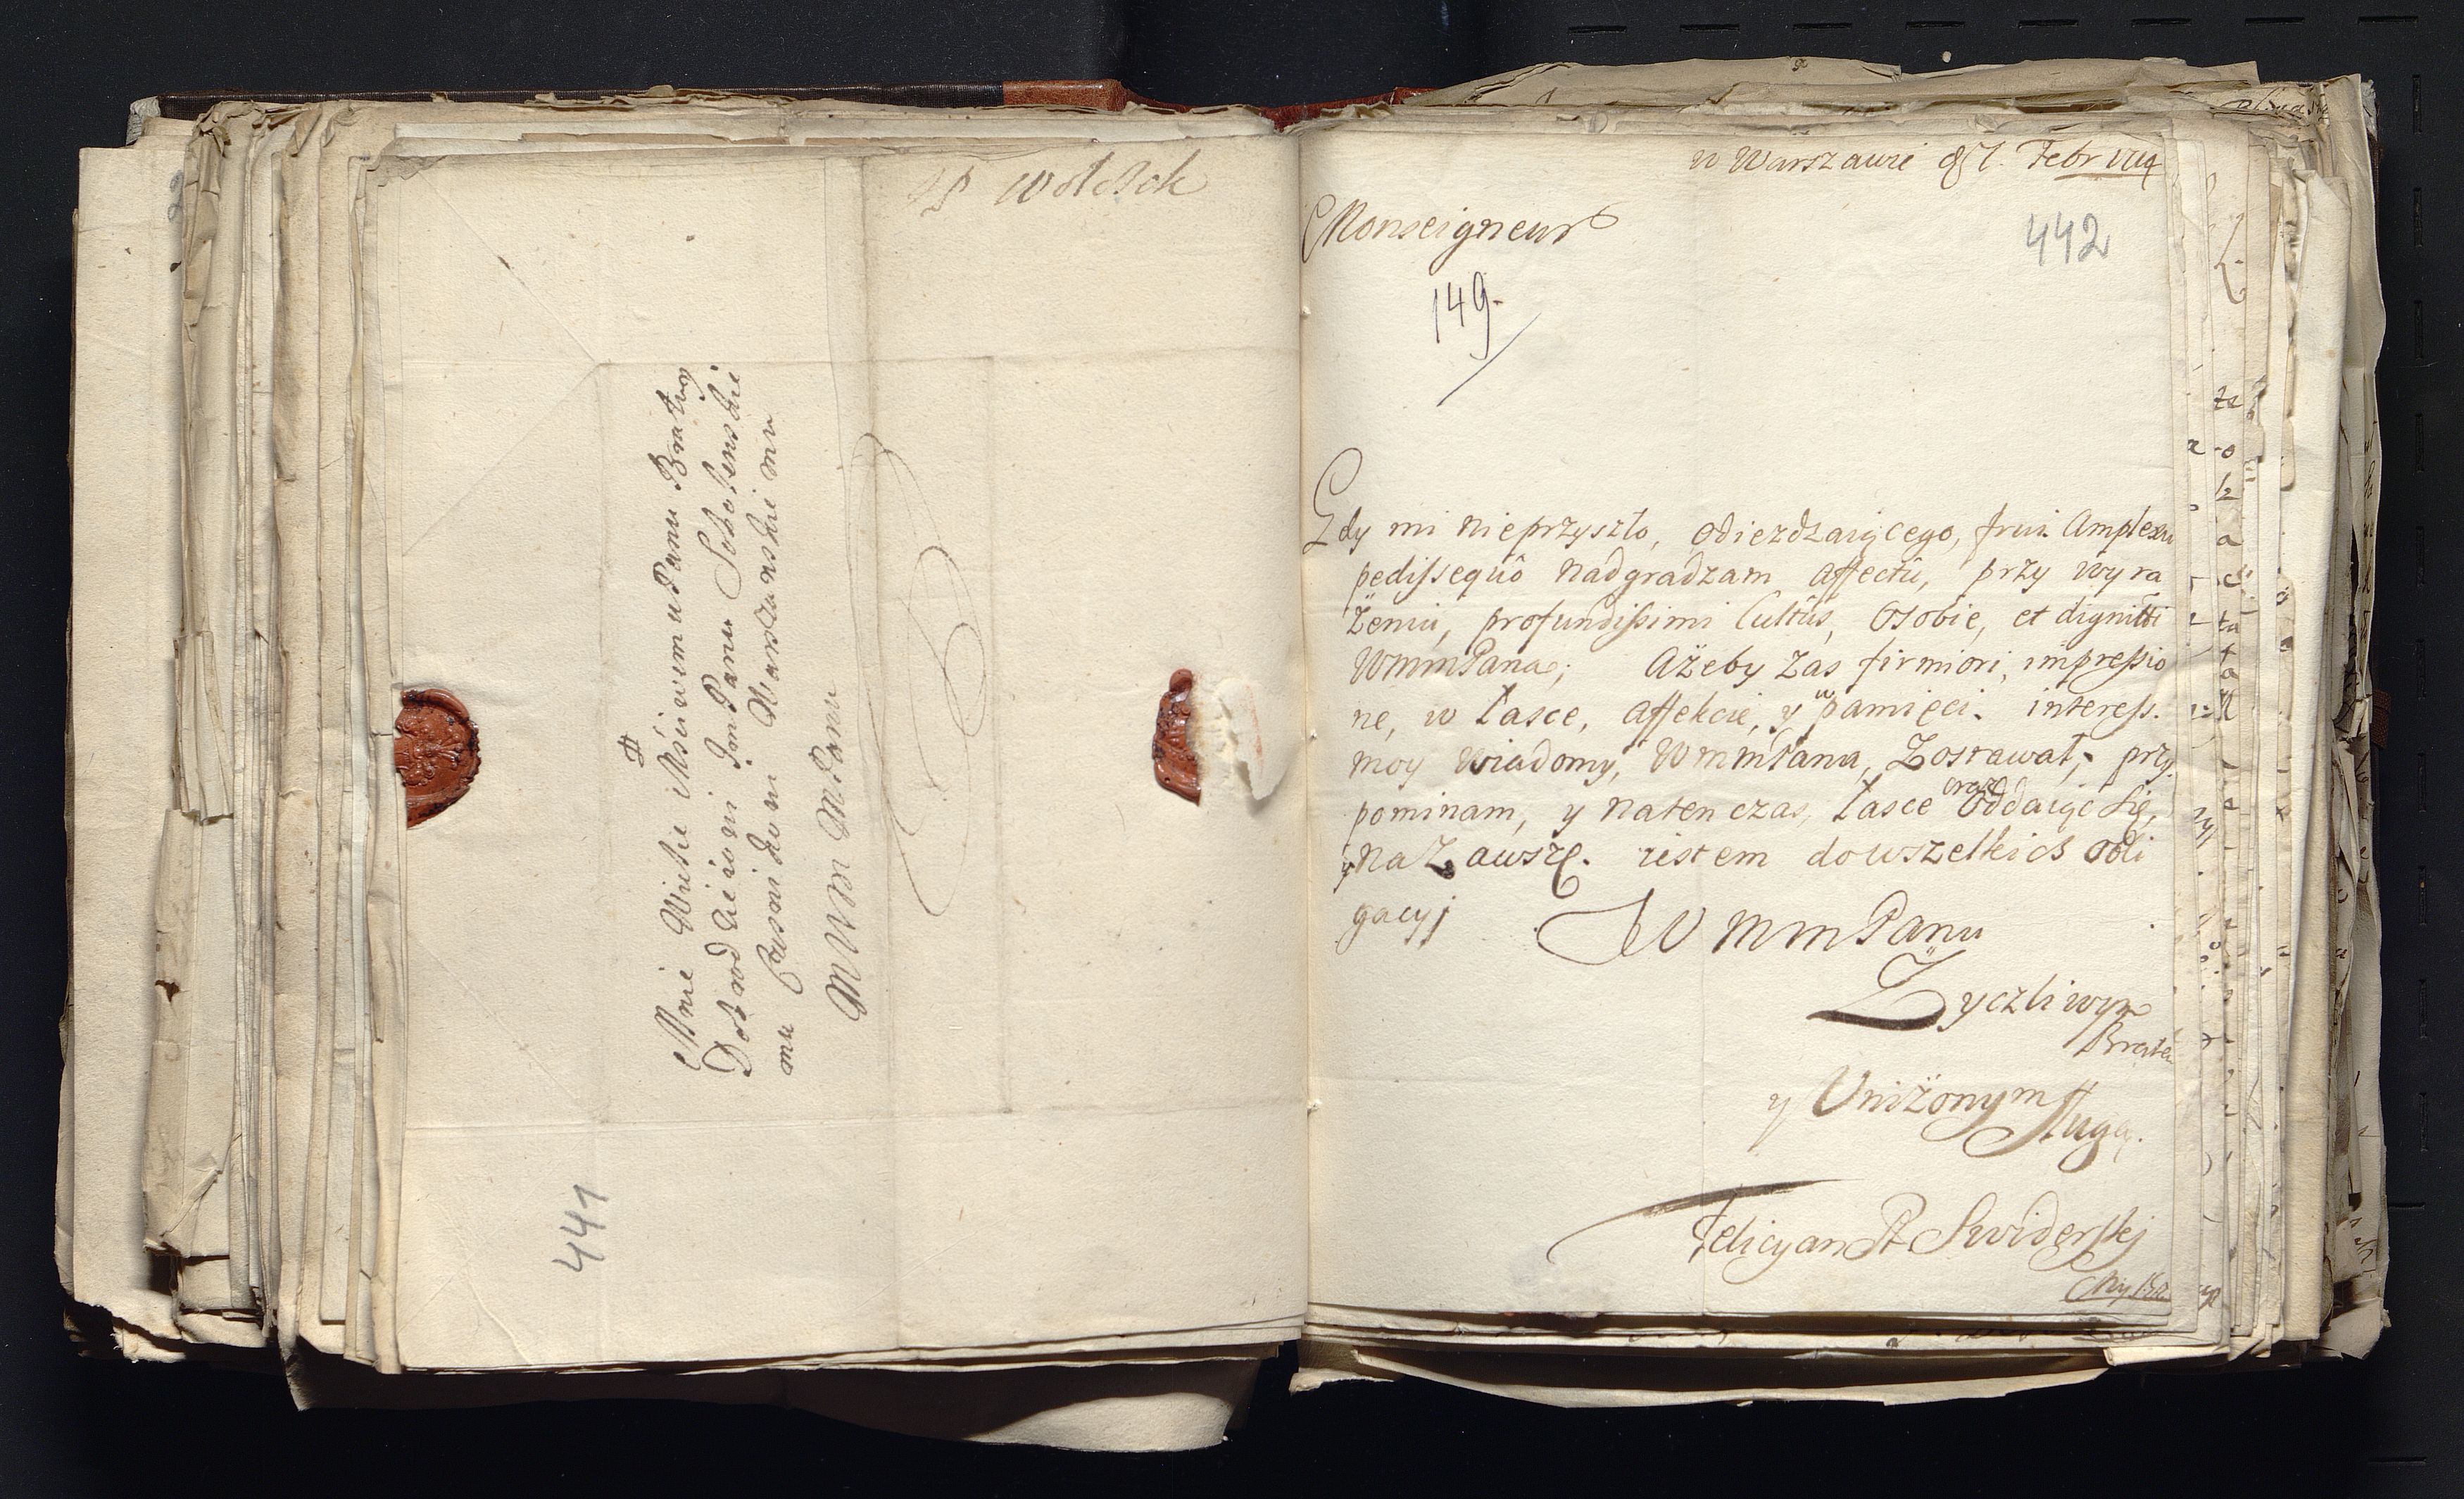 W wolsck
#
Mnie Wielce Mściwemu Panu Bratu
Dobrodzieiowi JmPanu Sobolewskie
mu Pisarzowi Warszawskiemu
MWM MPanu
441
w Warszawie 8 Febr 1714
442
Monseigneur
149.
Gdy mi nieprzyszło, odiezdzaiącego, frui Amplexu
pedissequô nadgradzam affectû, przy wyra
żeniu, profundissimi Cultûs, Osobie, et dignitti
WmmPana; Ażeby zas firmiori, impressio
ne, w Łasce, affekcie, y w pamięci. interess.
moy wiadomy, WmmPanu, Zostawał, przy
pominam, y natenczas, Łasce oraz oddaiąc się,
y na Zawsze. iestem dowszelkich obli
gacyj
WmmPanu
Zyczliwym
Bratem
y Uniżonym sługą.
Felicyan Swiderskj